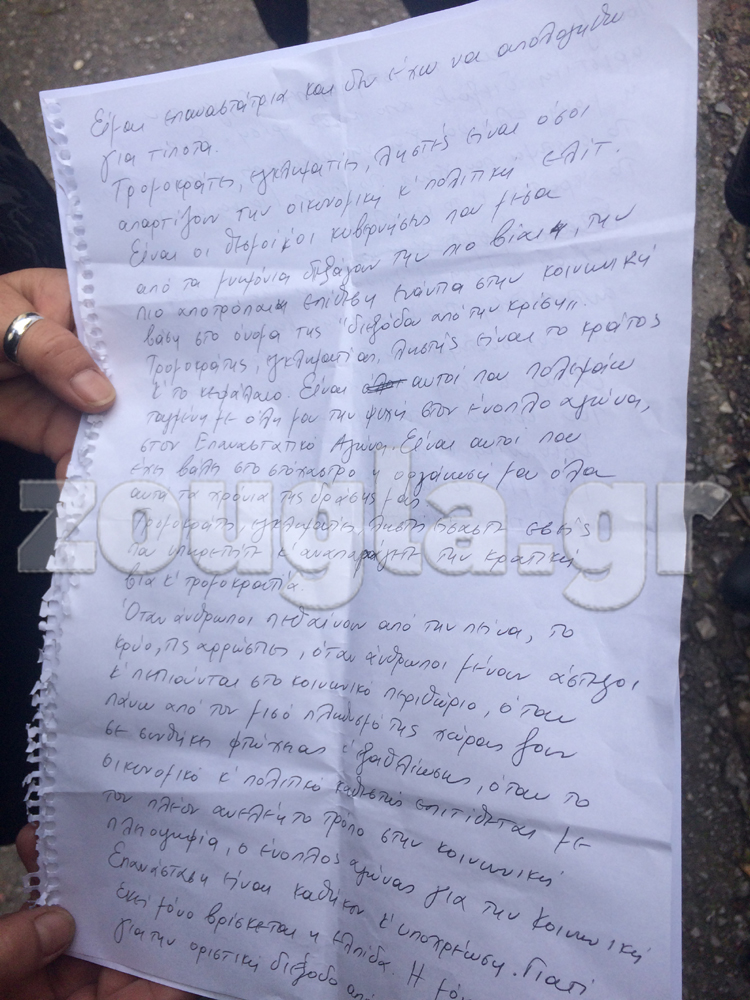 Είμαι επαναστάτρια και δεν έχω να απολογηθώ
για τίποτα.
Τρομοκράτες, εγκληματίες, ληστές είναι όσοι
απαρτίζουν την οικονομική κ' πολιτική ελίτ.
Είναι οι θεσμοί κ οι κυβερνήσεις που μέσα
από τα μνημόνια διεξάγουν την πιο βίαιη, την
πιο αποτρόπαιη επίθεση ενάντια στην κοινωνική
βάση στο όνομα της "διεξόδου από την κρίση".
Τρομοκράτης, εγκληματίας, ληστής είναι το κράτος
κ' το κεφάλαιο. Είναι αυτοί που πολεμάω
ταγμένη με όλη μου την ψυχή στον ένοπλο αγώνα,
στον Επαναστατικό Αγώνα. Είναι αυτοί που
έχει βάλη στο στόχαστρο η οργάνωσή μου όλα
αυτά τα χρόνια της δράσης μας.
Τρομοκράτες, εγκληματίες, ληστές είσαστε εσείς
που υπηρετείτε κ' αναπαράγετε την κρατική
βία κ' τρομοκρατία.
Όταν άνθρωποι πεθαίνουν από την πείνα, το
κρύο, τις αρρώστιες, όταν άνθρωποι μένουν άστεγοι
κ' πετιούνται στο κοινωνικό περιθώριο, όταν
πάνω από τον μισό πληθυσμό της χώρας ζουν
σε συνθήκες φτώχειας κ' εξαθλίωσης, όταν το
οικονομικό κ' πολιτικό καθεστώς επιτίθεται με
τον πλέον ανελέητο τρόπο στην κοινωνική
πλειοψηφία, ο ένοπλος αγώνας για την κοινωνική
Επανάσταση είναι καθήκον κ' υποχρέωση. Γιατί
εκεί μόνο βρίσκεται η ελπίδα. Η μόνη
για την οριστική διέξοδο από
zougla.gr